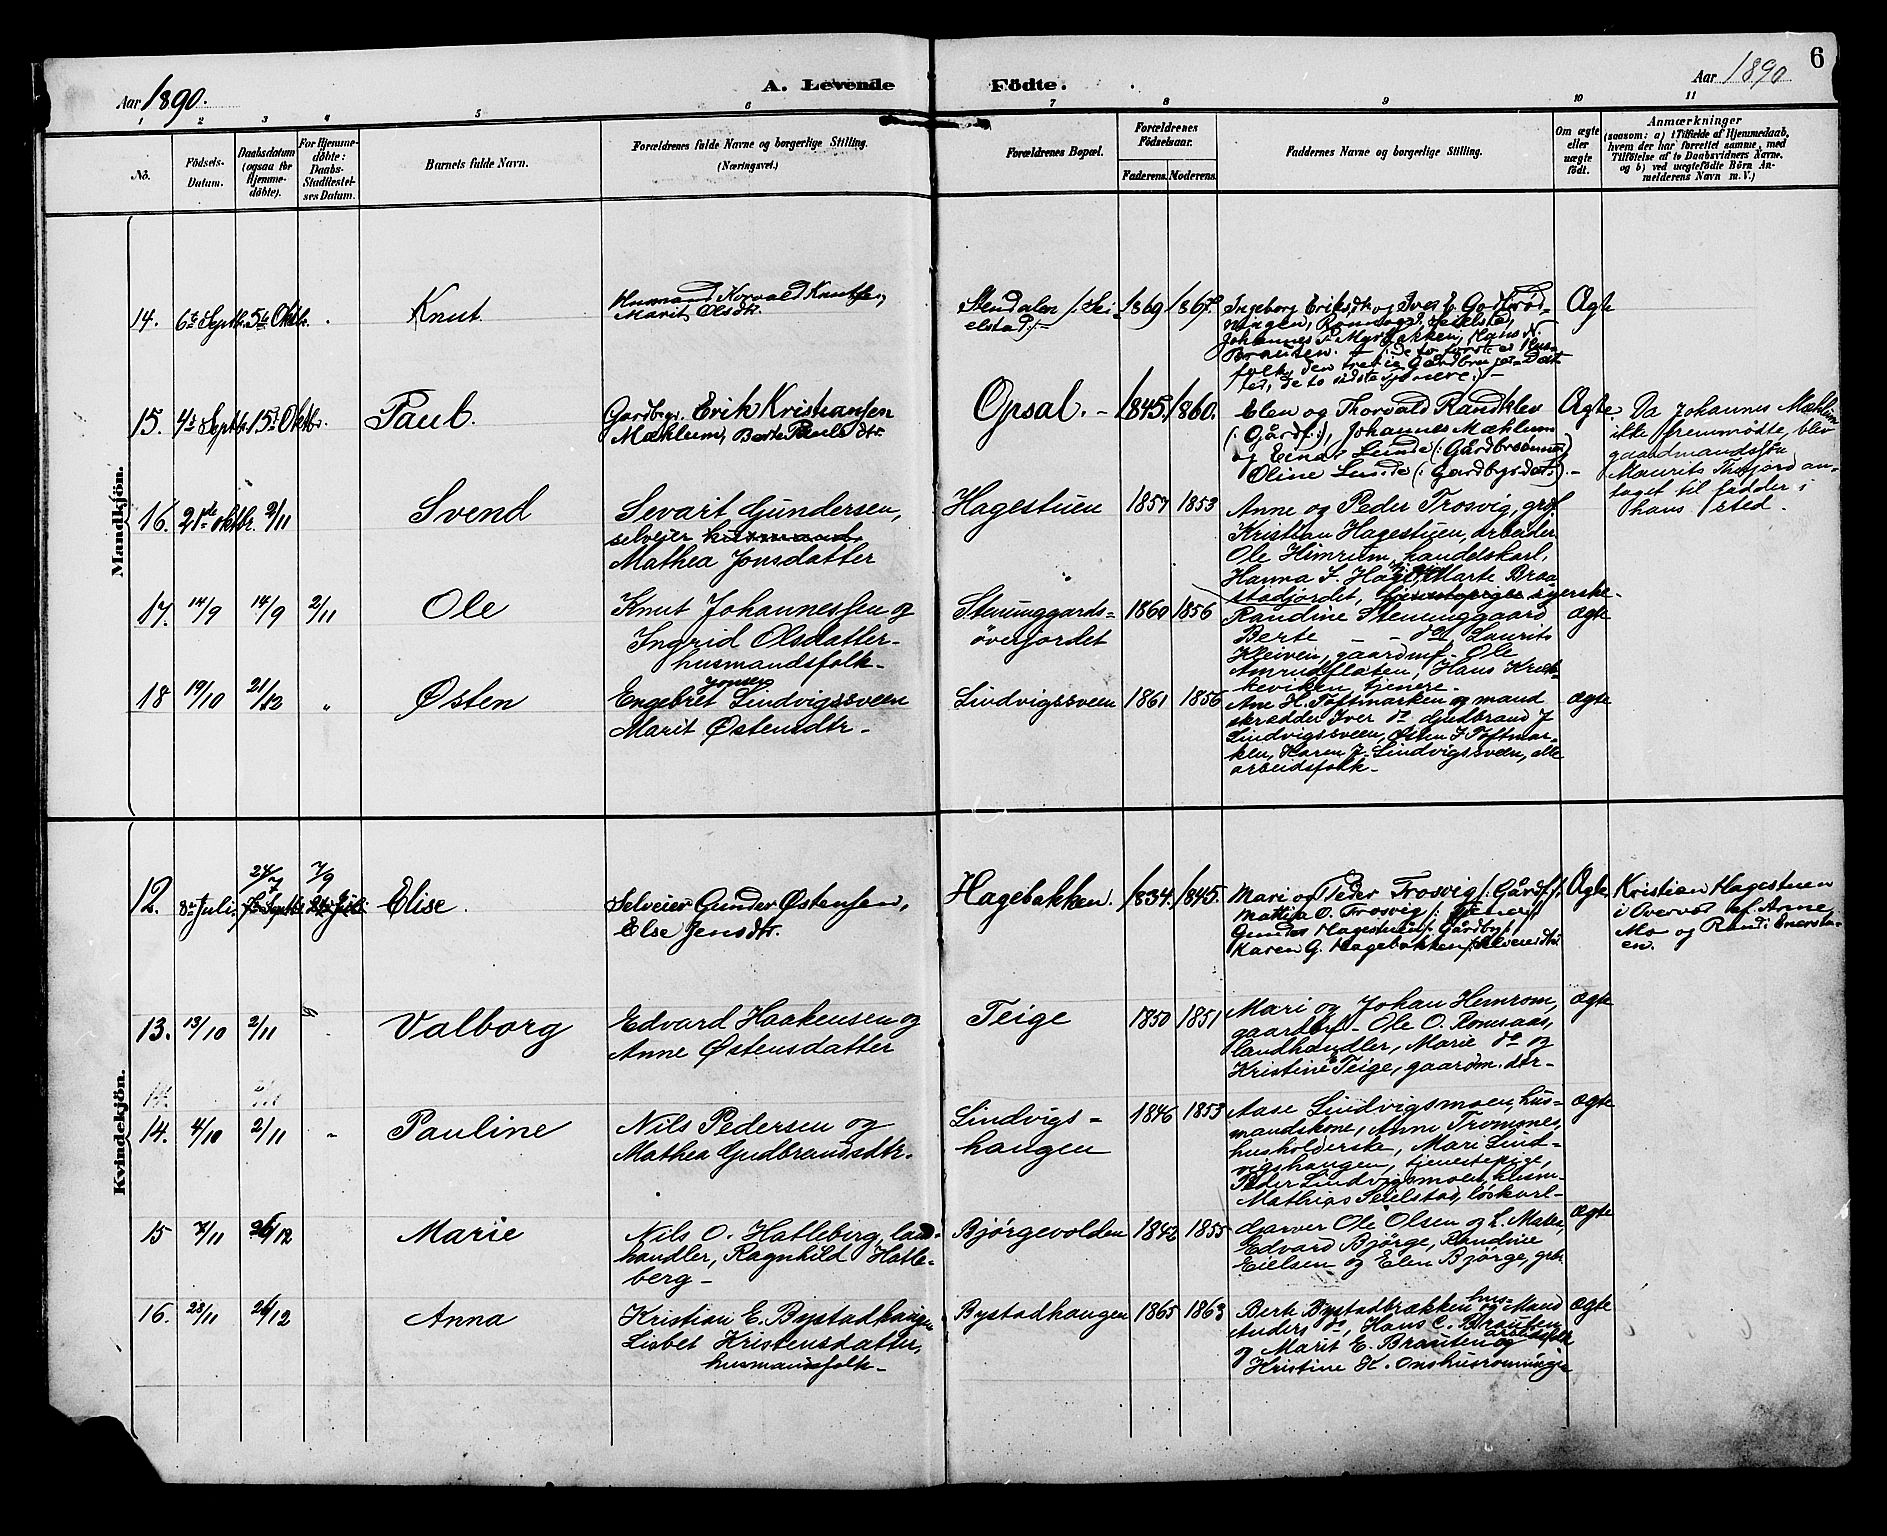 6
Aar 1890.
A. Levende Födte.
Aar 1890
1 2 3 4 5 6 7 8 9 10 11
Nö.
Födsels-
Datum.
Daabsdatum
(ogsaa for
Hjemme-
döbte).
For Hjemme-
döbte:
Daabs-
Stadfæstel-
ses Datum.
Barnets fulde Navn.
Forældrenes fulde Navne og borgerlige Stilling.
(Næringsvei.)
Forældrenes Bopæl.
Forældrenes
Födselsaar.
Faderens. Moderens.
Faddernes Navne og borgerlige Stilling.
Om ægte
eller
uægte
födt.
Anmærkninger
(saasom: a) i Tilfælde af Hjemmedaab,
hvem der har forrettet samme, med
Tilföielse af to Daabsvidners Navne,
og b) ved uægtefödte Börn An-
melderens Navn m. V.)
Mandkjön.
14. 6te Septbr. 5te Oktbr. Knut
Husmand Korvald Knutsen,
Marit Olsdtr.
Stendalen /: Sei-
elstad :/
1869 1867
Ingeborg Eriksdtr og Iver E. Gardbrød-
Johannes P. Myrbakken, Hans N.
Brauten.
Ægte
15. 4de Septbr. 15de Oktbr. Paul.
Gardbrgr. Erik Kristiansen
Mæklum, Berte Paulsdtr.
Opsal. 1845 1860.
Elen og Thorvald Randklev
(: Gårdf :), Johannes Mæklum
og Einar Lunde (: Gårdbrsønner)
Oline Lunde (: Gardbrgsdat :).
Ægte.
Da Johannes Mæklum
ikke fremmødte, blev
gaardmandssøn
Maurits an-
taget til fadder i
hans sted.
16. 21de oktbr. 2/11 Svend
Sevart Gundersen,
selveier husmand,
Mathea Jonsdatter
Hagestuen 1857 1853
Anne og Peder Trosvig, grdf.
Kristian Hagestuen, arbeider
Ole Himrum, handelskarl,
Hanna S. Marte Braa-
stadjordet, syerske.
17. 14/9 14/9 2/11 Ole
Knut Johannessen og
Ingrid Olsdatter-
husmandsfolk-
Stenunggards-
øverjordet
1860 1856
Randine Stenunggaard
Berte - - do, Laurits
Kleiven, gaardmf. Ole
Amrudflaten, Hans Krik-
keviken, tjenere-
ægte
18 19/10 21/12 " Østen
Engebret Jonsen Lindvigssveen
Marit Østensdtr-
Lindvigssveen 1861 1856
Ane H. Toftmarken og mand
skrædder Iver do, Gudbrand J
Lindvigssveen, Østen J Toftmar-
ken, Karen J. Lindvigssveen, alle
arbeidsfolk-
ægte
Kvindekjön.
12. 8de Juli. 24/7 7/9 Elise.
Selveier Gunder Østensen,
Else Jensdtr.
Hagebakken. 1834. 1845.
Mari og Peder Trosvig /: Gårdf :/.
Mattia O. Trosvig /: Tjener :/
Gunder Hagestuen /: Gårdbr :/
Karen G. Hagebakken /: Selveierdtr.
Ægte.
Kristian Hagestuen
i Overvær af Anne
Mo og Randi Enersta-
en.
13. 13/10 2/11 Valborg
Edvard Haakensen og
Anne Østensdatter
Teige 1850 1851
Mari og Johan Hemrom,
gaardbrf- Ole O. Romsaas,
landhandler, Marie do og
Kristine Teige, gaardm. dtr-
ægte
14. 2/11
14. 4/10 2/11 " Pauline
Nils Pedersen og
Mathea Gudbrandsdtr.
Lindvigs-
haugen
1846 1853
Aase Lindvigsmoen, hus-
mandskone, Anne Tromnes,
husholderske, Mari Lind-
vigshaugen, tjenestepige,
Peder Lindvigsmoen, husm-
Mathias Seielstad, løskarl-
ægte
15 7/11 26/12 Marie
Nils O. Hatleberg, land-
handler, Ragnhild Hatle-
berg-
Bjørgevolden 1842 1855
Garver Ole Olsen og L. Mater,
Edvard Bjørge, Randine
Eielsen og Elen Bjørge, grbr.
ægte
16. 23/11 26/12 Anna
Kristian E. Bystadhaugen
Lisbet Kristensdatter,
husmandsfolk-
Bystadhaugen 1865 1863
Berte Bystadbrækken og Mand
Anders do, Hans C. Brauten
og Marit E. Brauten og arbeidsfolk
Kristine K. Onshusrønningen
ægte